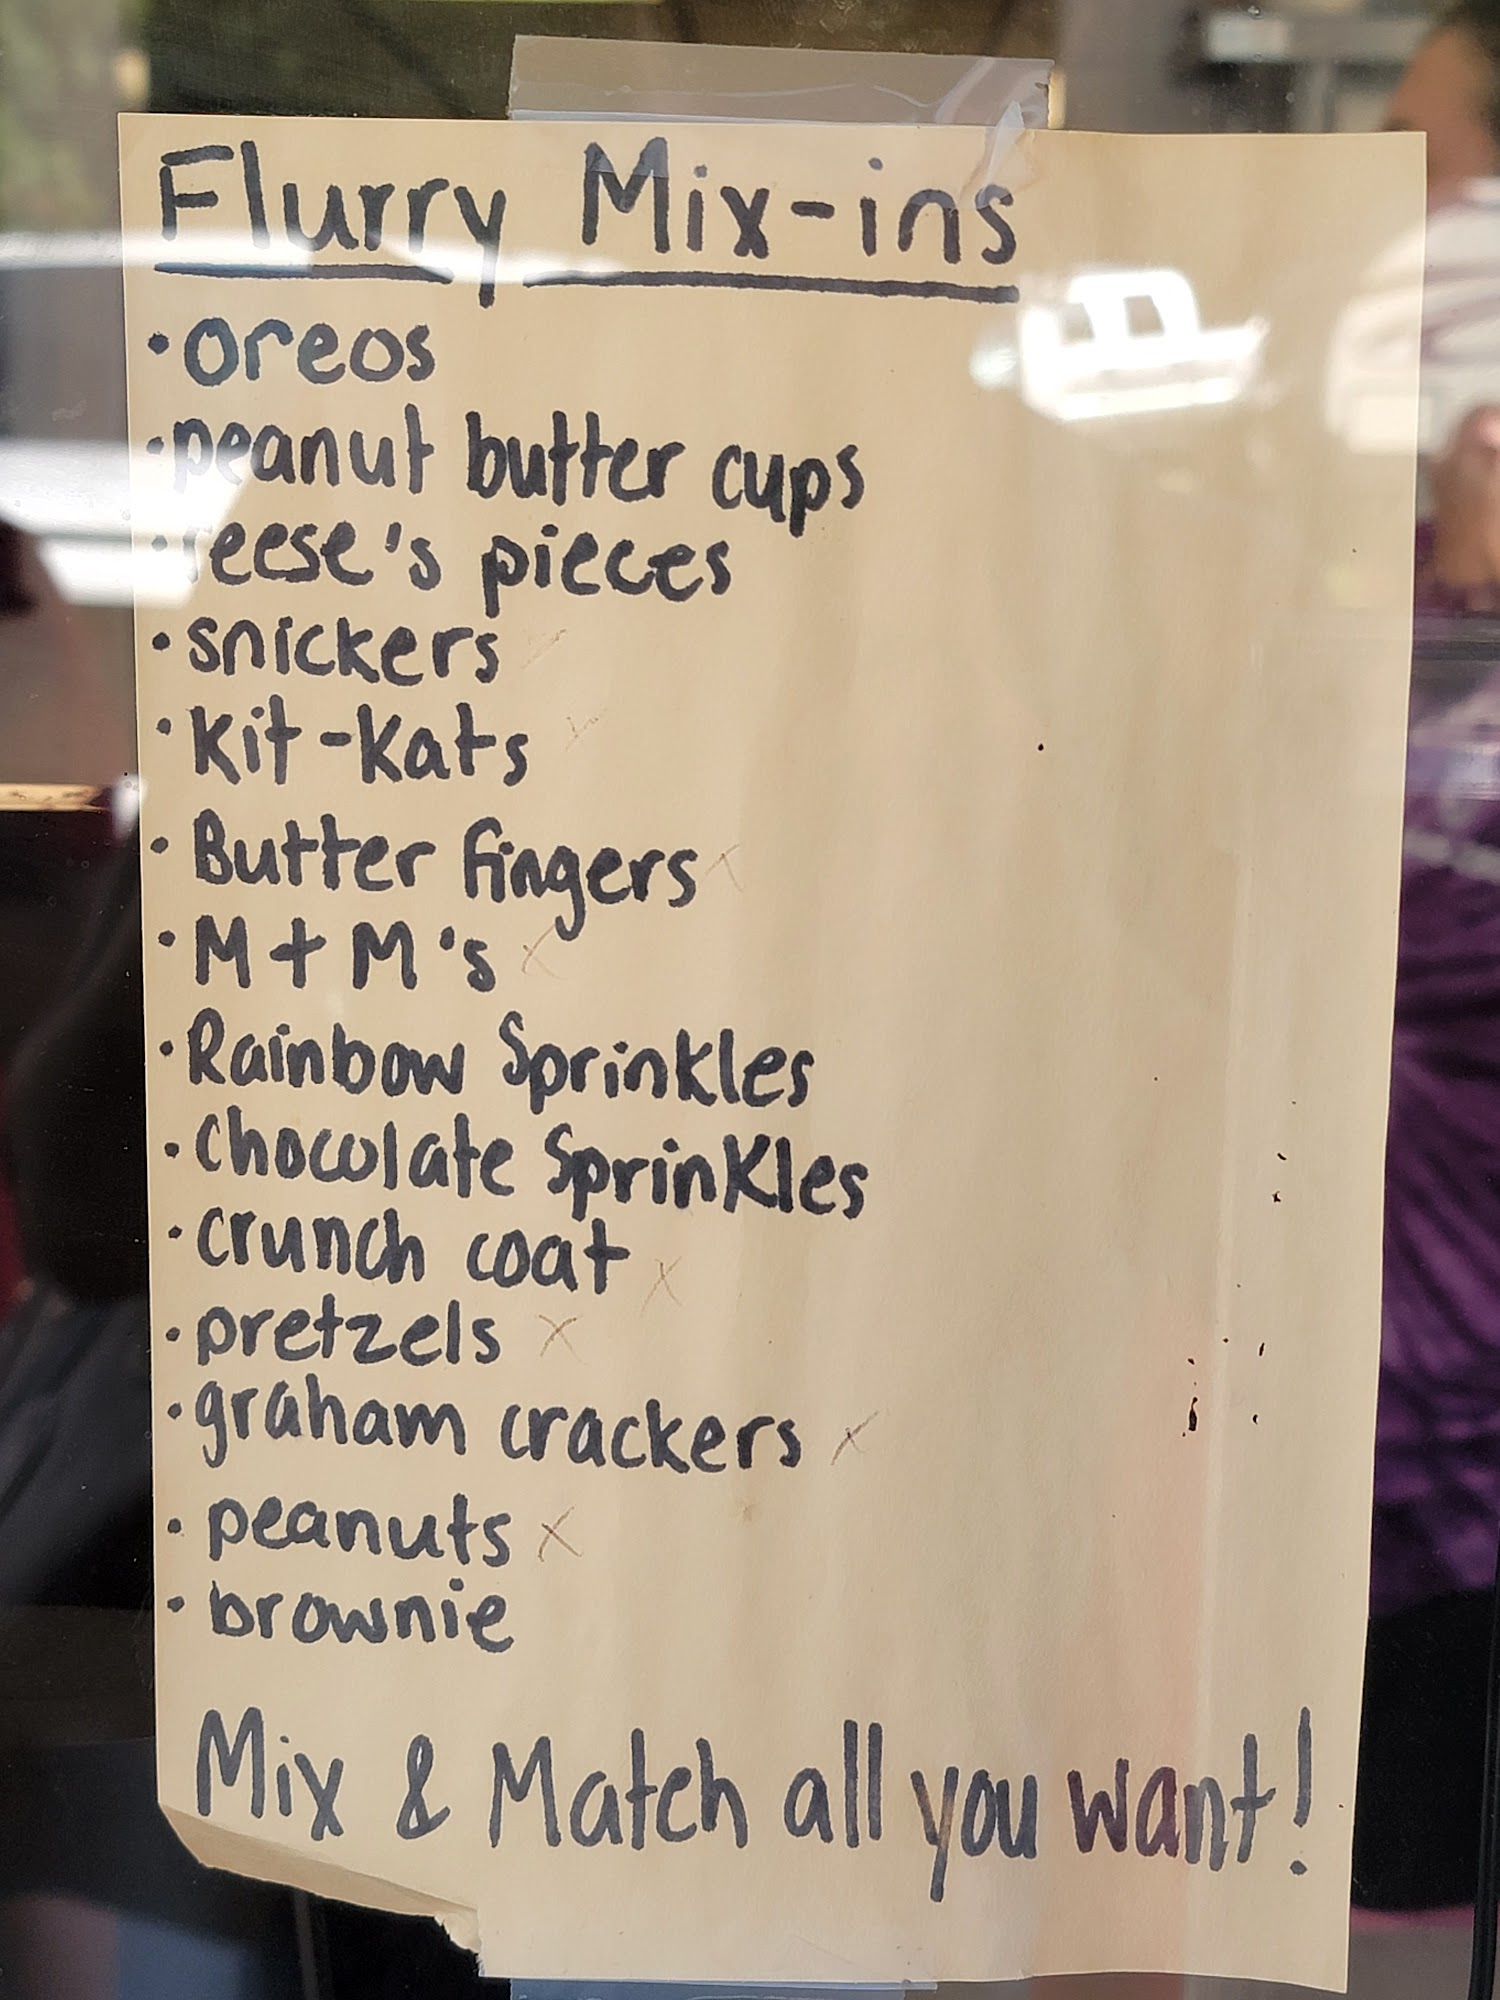 Flurry Mix-ins
• oreos
• peanut butter cups
• reese's pieces
• snickers
• Kit-Kats
• Butter fingers x
• M+M's x
• Rainbow Sprinkles
• Chocolate Sprinkles
• crunch coat x
• pretzels x
• graham crackers x
• peanuts x
• brownie
Mix & Match all you want!